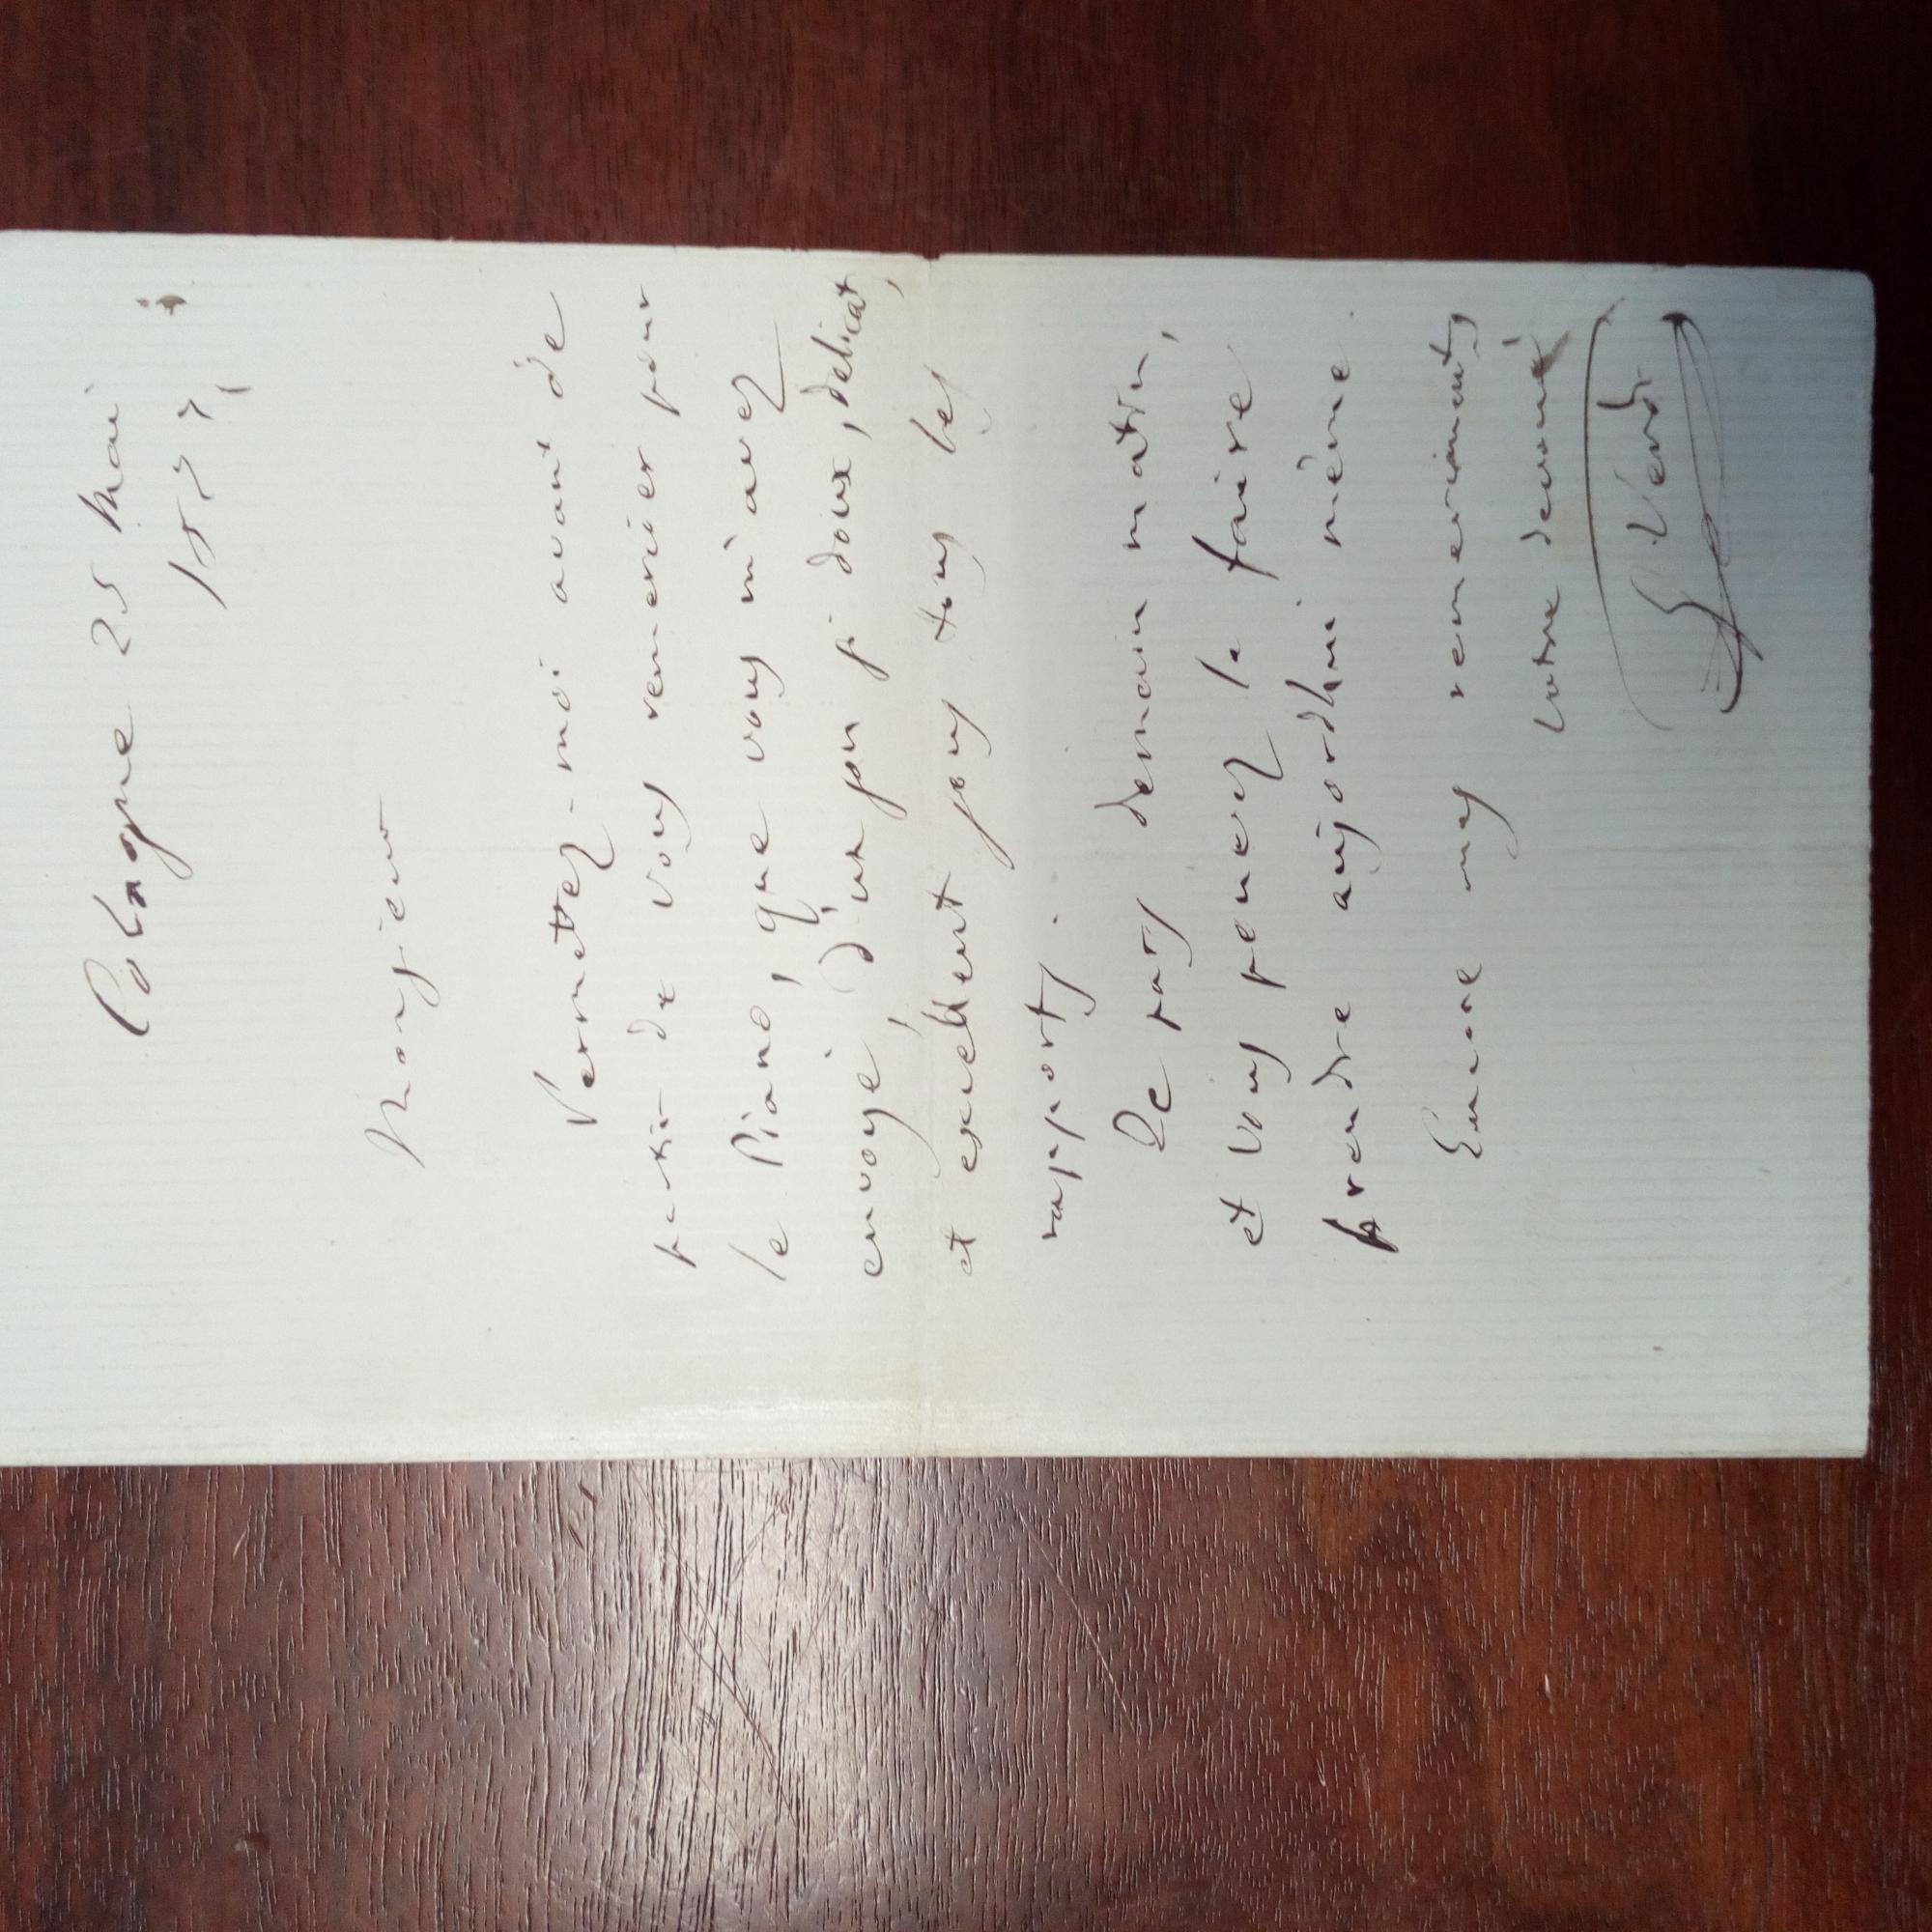 Cologne 25 Mai
1877
Monsieur
Permettez-moi avant de
partir de vous remercier pour
le Piano, que vous m'avez
envoyé, d'un son si doux, delicat,
et excellent sous tous les
rapports.
Je pars demain matin,
et vous pouvez le faire
prendre aujordhui même.
Encore mes remerciments
votre devoué
G. Verdi